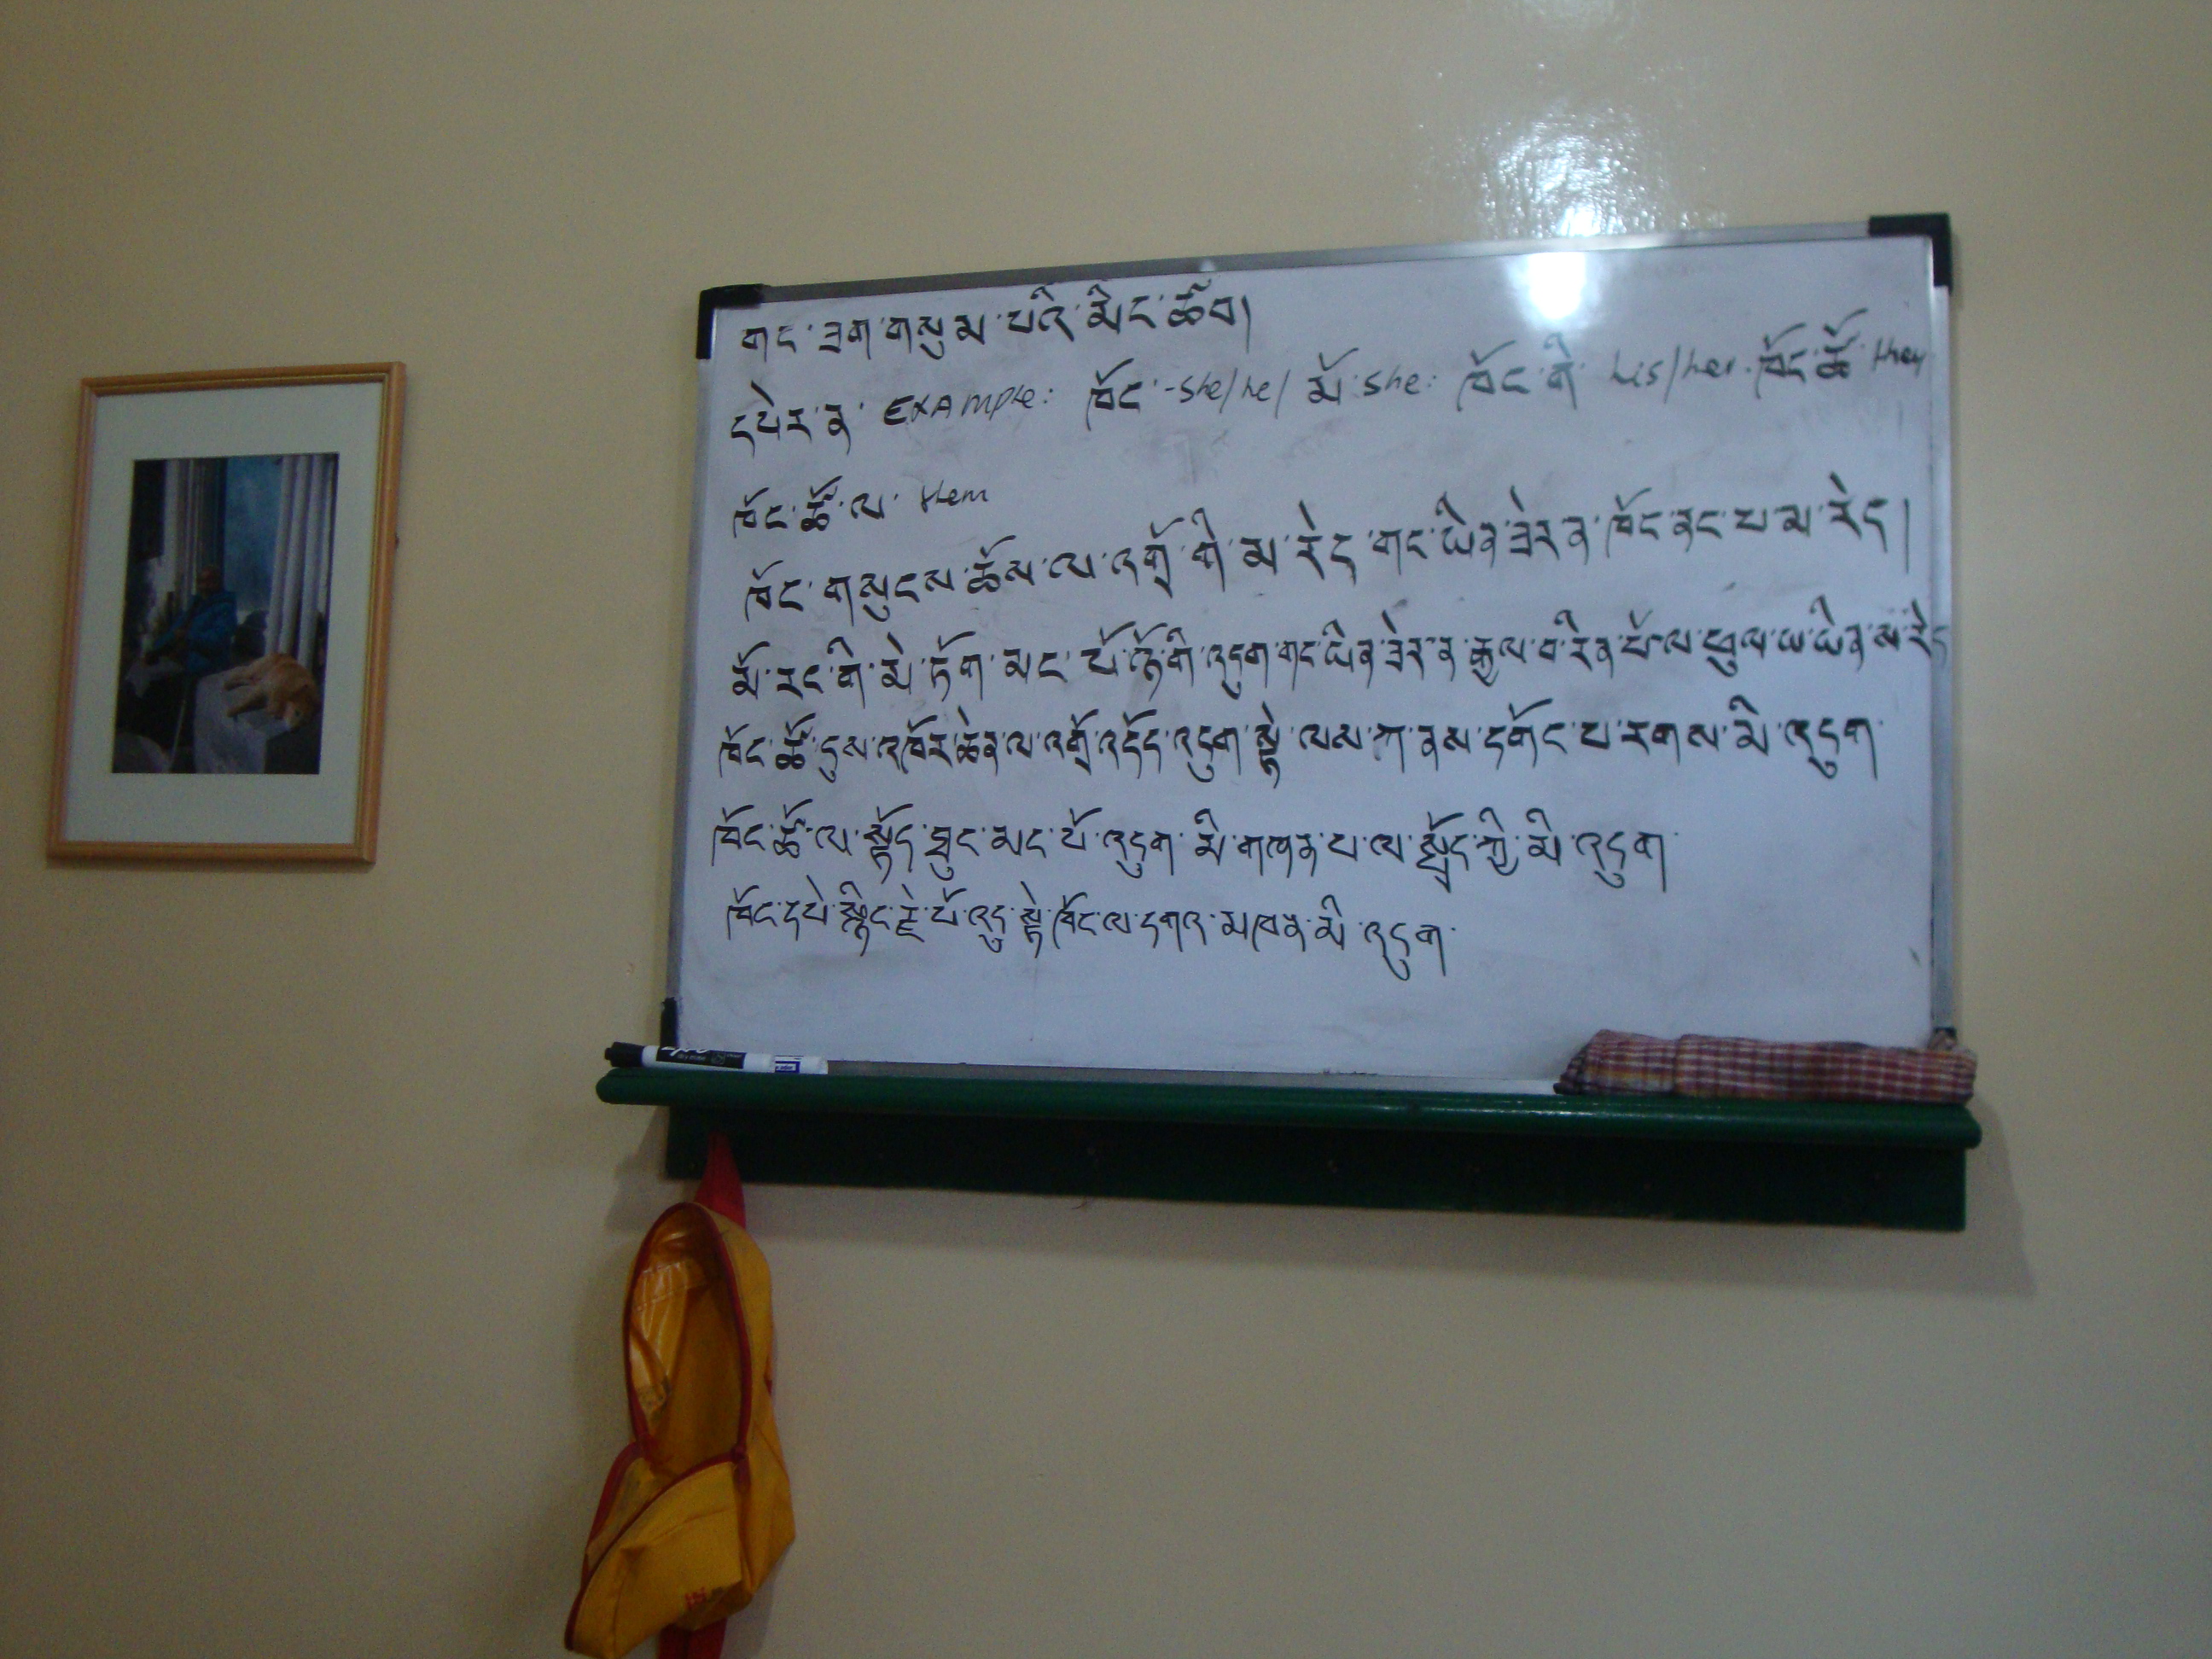 གང་ཟག་གསུམ་པའི་མིང་ཚབ།
དཔེར་ན་ EXAMPLE: ཁོང་-she/he/ མོ་she: ཁོང་གི་ his/her. ཁོང་ཚོ་ they
ཁོང་ཚོ་ལ་ them
ཁོང་གསུངས་ཆོས་ལ་འགྲོ་གི་མ་རེད་གང་ཡིན་ཟེར་ན་ཁོང་ནང་པ་མ་རེད།
མོ་རང་གི་མེ་ཏོག་མང་པོ་ཉོ་གི་འདུག་གང་ཡིན་ཟེར་ན་རྒྱལ་བ་རིན་པོ་ལ་ཕུལ་ཡ་ཡིན་ས་རེད
ཁོང་ཚོ་དུས་འཁོར་ཆེན་ལ་འགྲོ་འདོད་འདུག་སྟེ་ལས་ཀ་ནས་དགོང་པ་རགས་མི་འདུག
ཁོང་ཚོ་ལ་སྟོད་ཐུང་མང་པོ་འདུག་མི་གཞན་པ་ལ་སྤྲོད་ཀྱི་མི་འདུག
ཁོང་དཔེ་སྙིང་རྗེ་པོ་འདུ་སྟེ་ཁོང་ལ་དགའ་མཁན་མི་འདུག